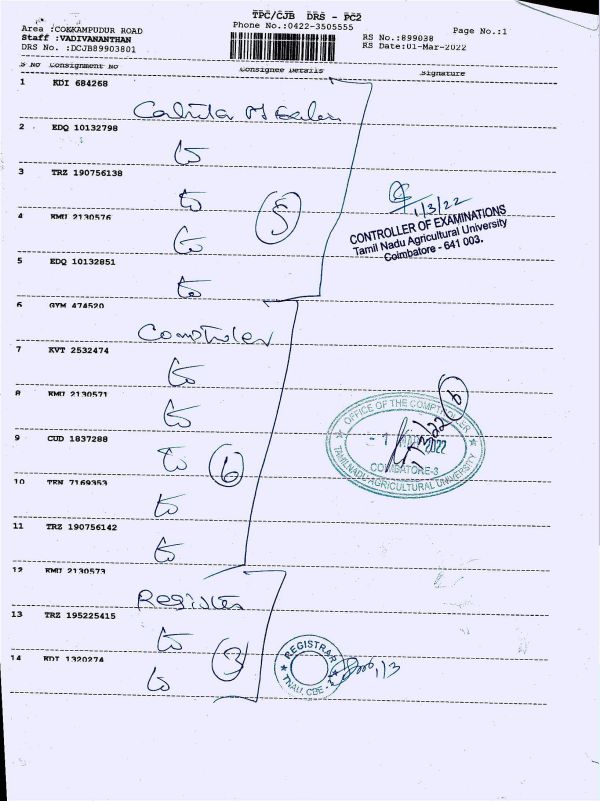 TPC/CJB DRS - PC2
Area :COKKAMPUDUR ROAD Phone No.:0422-3505555 Page No.:1
Staff :VADIVANANTHAN RS No.:899038
DRS No. :DCJB89903801 RS Date:01-Mar-2022
S No Consignment No Consignee Details Signature
1 KDI 684268
2 EDQ 10132798
3 TRZ 190756138
5
1/3/22
4 KMU 2130576
CONTROLLER OF EXAMINATIONS
Tamil Nadu Agricultural University
Coimbatore - 641 003.
5 EDQ 10132851
6 GYM 474520
Comptroler
7 KVT 2532474
8 KMU 2130571
6
OFFICE OF THE COMPTROLLER
- 1 2022
COIMBATORE-3
TAMILNADU AGRICULTURAL UNIVERSITY
9 CUD 1837288
6
10 TEN 7169353
11 TRZ 190756142
12 KMU 2130573
Register
13 TRZ 195225415
3
REGISTRAR
TNAU, CBE - 3
1/3
14 KDI 1320274